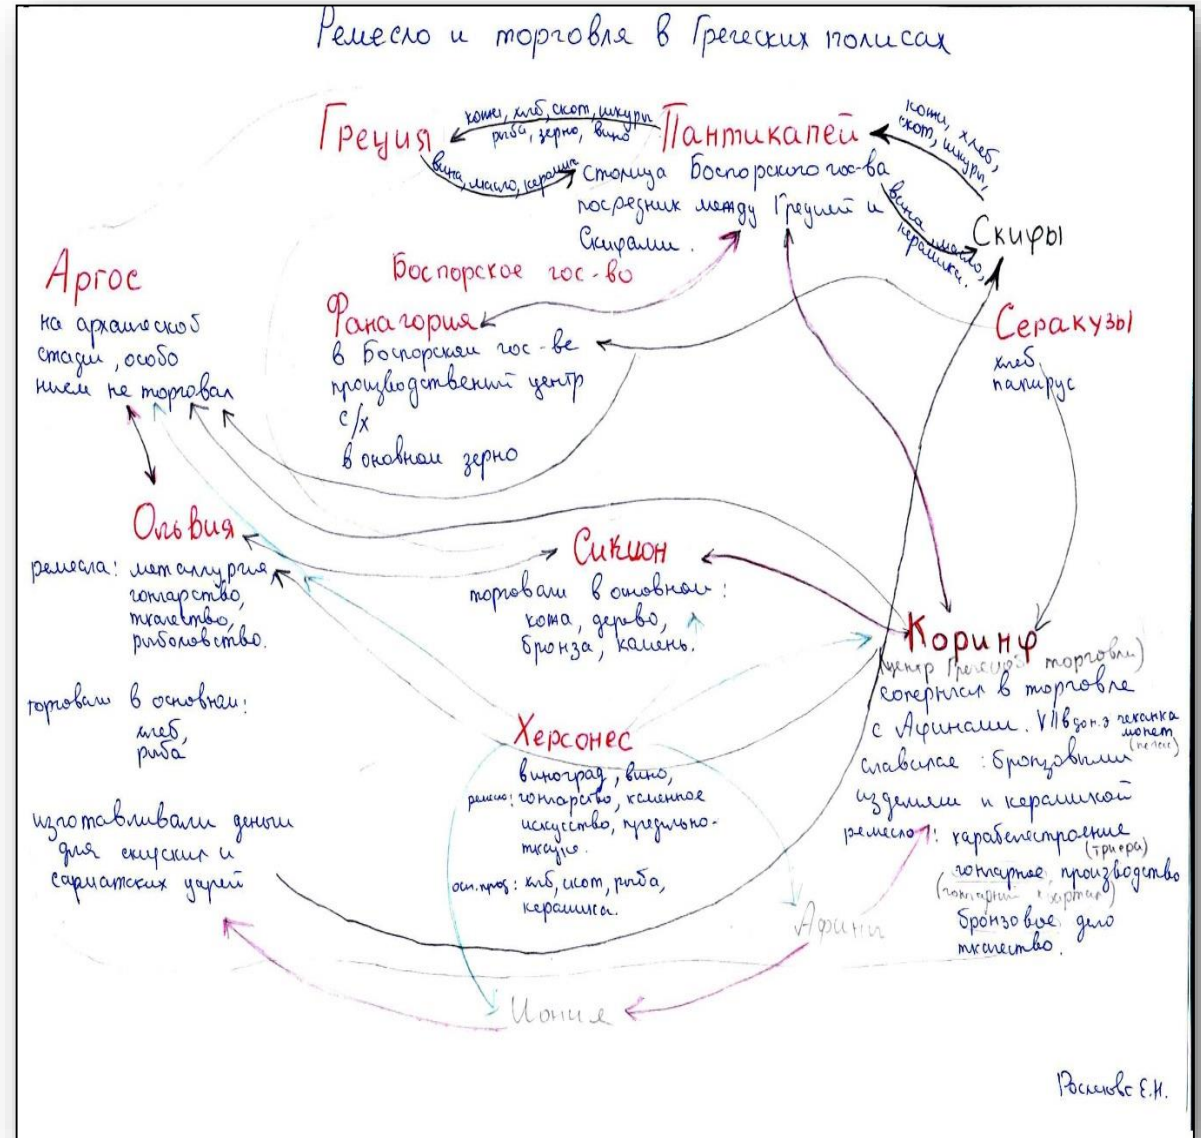 Ремесло и торговля в Греческих полисах
Греция
кожи, хлеб, скот, шкуры
рыба, зерно, вино
вина, масло, керамик
Пантикапей
столица Боспорского гос-ва
посредник между Грецией и
Скифами.
кожи, хлеб,
скот, шкуры,
вина, масло,
керамика.
Скифы
Аргос
на архаической
стадии, особо
ничем не торговал
Боспорское гос-во
Фанагория
в Боспорском гос-ве
производственный центр
с/х
в основном зерно
Серакузы
хлеб
папирус
Ольвия
ремесла: металлургия
гончарство,
ткачество,
рыболовство.
торговали в основном:
хлеб,
рыба
изготавливали деньги
для скифских и
сарматских царей
Сикион
торговали в основном:
кожа, дерево,
бронза, камень.
Коринф
(центр Греческой торговли)
соперничал в торговле
с Афинами. VII в до н.э чеканка
монет
славился: бронзовыми
изделиями и керамикой
ремесло: карабелестроение
(триера)
гончарное производство
(гончарный квартал)
бронзовое дело
ткачество.
Херсонес
виноград, вино,
ремесло: гончарство, каменное
искусство, прядильно-
ткацкое.
осн. прод: хлб, скот, рыба,
керамика.
Афины
Иония
Е.Н.